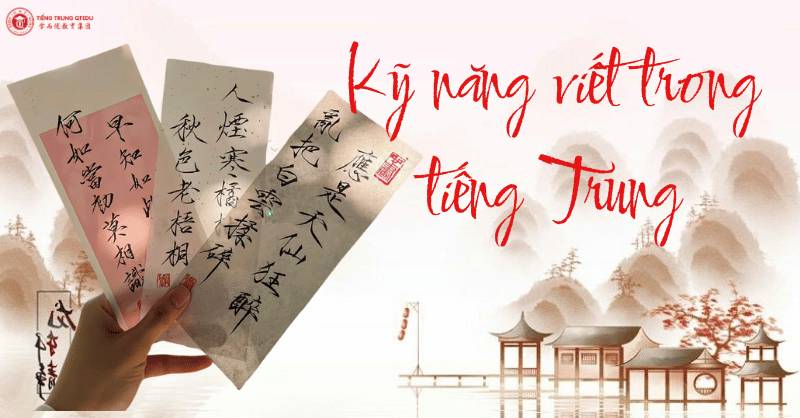 TIẾNG TRUNG QTEDU
学而优教育集团
Kỹ năng viết trong
tiếng Trung
早知如
何如當初莫相識
人煙寒橘
秋色老梧桐
應是天仙狂醉
亂把白雲揉碎